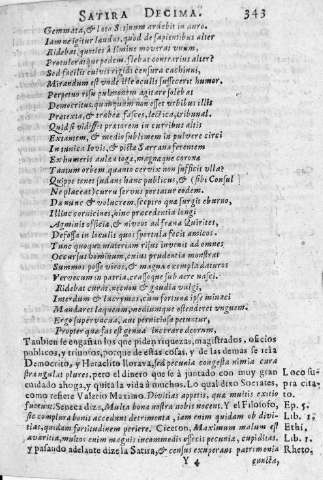 SATIRA DECIMA. 343
Gemmata, & loto Setinum ardebit in auro.
Iamne igitur laudas, quòd de sapientibus alter
Ridebat, quoties à limine mouerat vnum,
Protuleratque pedem. flebat contrarius alter?
Sed facilis cuiuis rigidi censura cachinni,
Mirandum est vnde ille oculis suffecerit humor.
Perpetuo risu pulmonem agitare solebat
Democritus, quanquam non esset vrbibus illis
Pretexta, & trabea fasces, lectica, tribunal.
Quid si vidisset pratorem in curribus altis
Extantem, & medio sublimem in puluere circi
In tunica Iouis, & picta Sarrana ferentem
Ex humeris aulea toga, magnaque corona
Tantum orbem quanto ceruix non sufficit vlla?
Quippe tenet sudans hanc publicus, & (sibi Consul
Ne placeat) curru seruus portatur eodem.
Da nunc & volucrem, sceptro qua surgit eburno,
Illinc cornicines, hinc procedentia longi
Agminis officia, & niueos ad frana Quirites,
Defossa in loculis quos sportula fecit amicos.
Tunc quoque materiam risus inuenit ad omnes
Occursus hominum, cuius prudentia monstrat
Summos posse viros, & magna exempla daturos
Veruecum in patria, crassoque sub aere nasci.
Ridebat curas, necnon & gaudia vulgi,
Interdum & lacrymas, cum fortuna ipse minaci
Mandaret laqueum, mediumque ostenderet vnguem.
Ergo superuacua, aut perniciosa petuntur,
Propter qua fas est genua incerare deorum.
Tambien se engañan los que piden riquezas, magistrados, oficios
publicos, y triunfos, porque de estas cosas, y de las demas se reia
Democrito, y Heraclito lloraua, sed pecunia congesta nimia cura
strangulat plures, pero el dinero que se à juntado con muy gran
cuidado ahoga, y quita la vida à muchos. Lo qual dixo Socrates,
como refiere Valerio Maximo. Diuitias appetis, qua multis exitio
fuerunt. Seneca dize, Multa bona nostra nobis nocent. Y el Filosofo,
Ciceron, Maximum malum est
y passado adelante dize la Satira, & census exuperans patrimonia
Y 4 cuncta,
Loco supra citato.
Ep. 5.
Lib. 1.
Ethi,
Lib. 1.
Rheto,